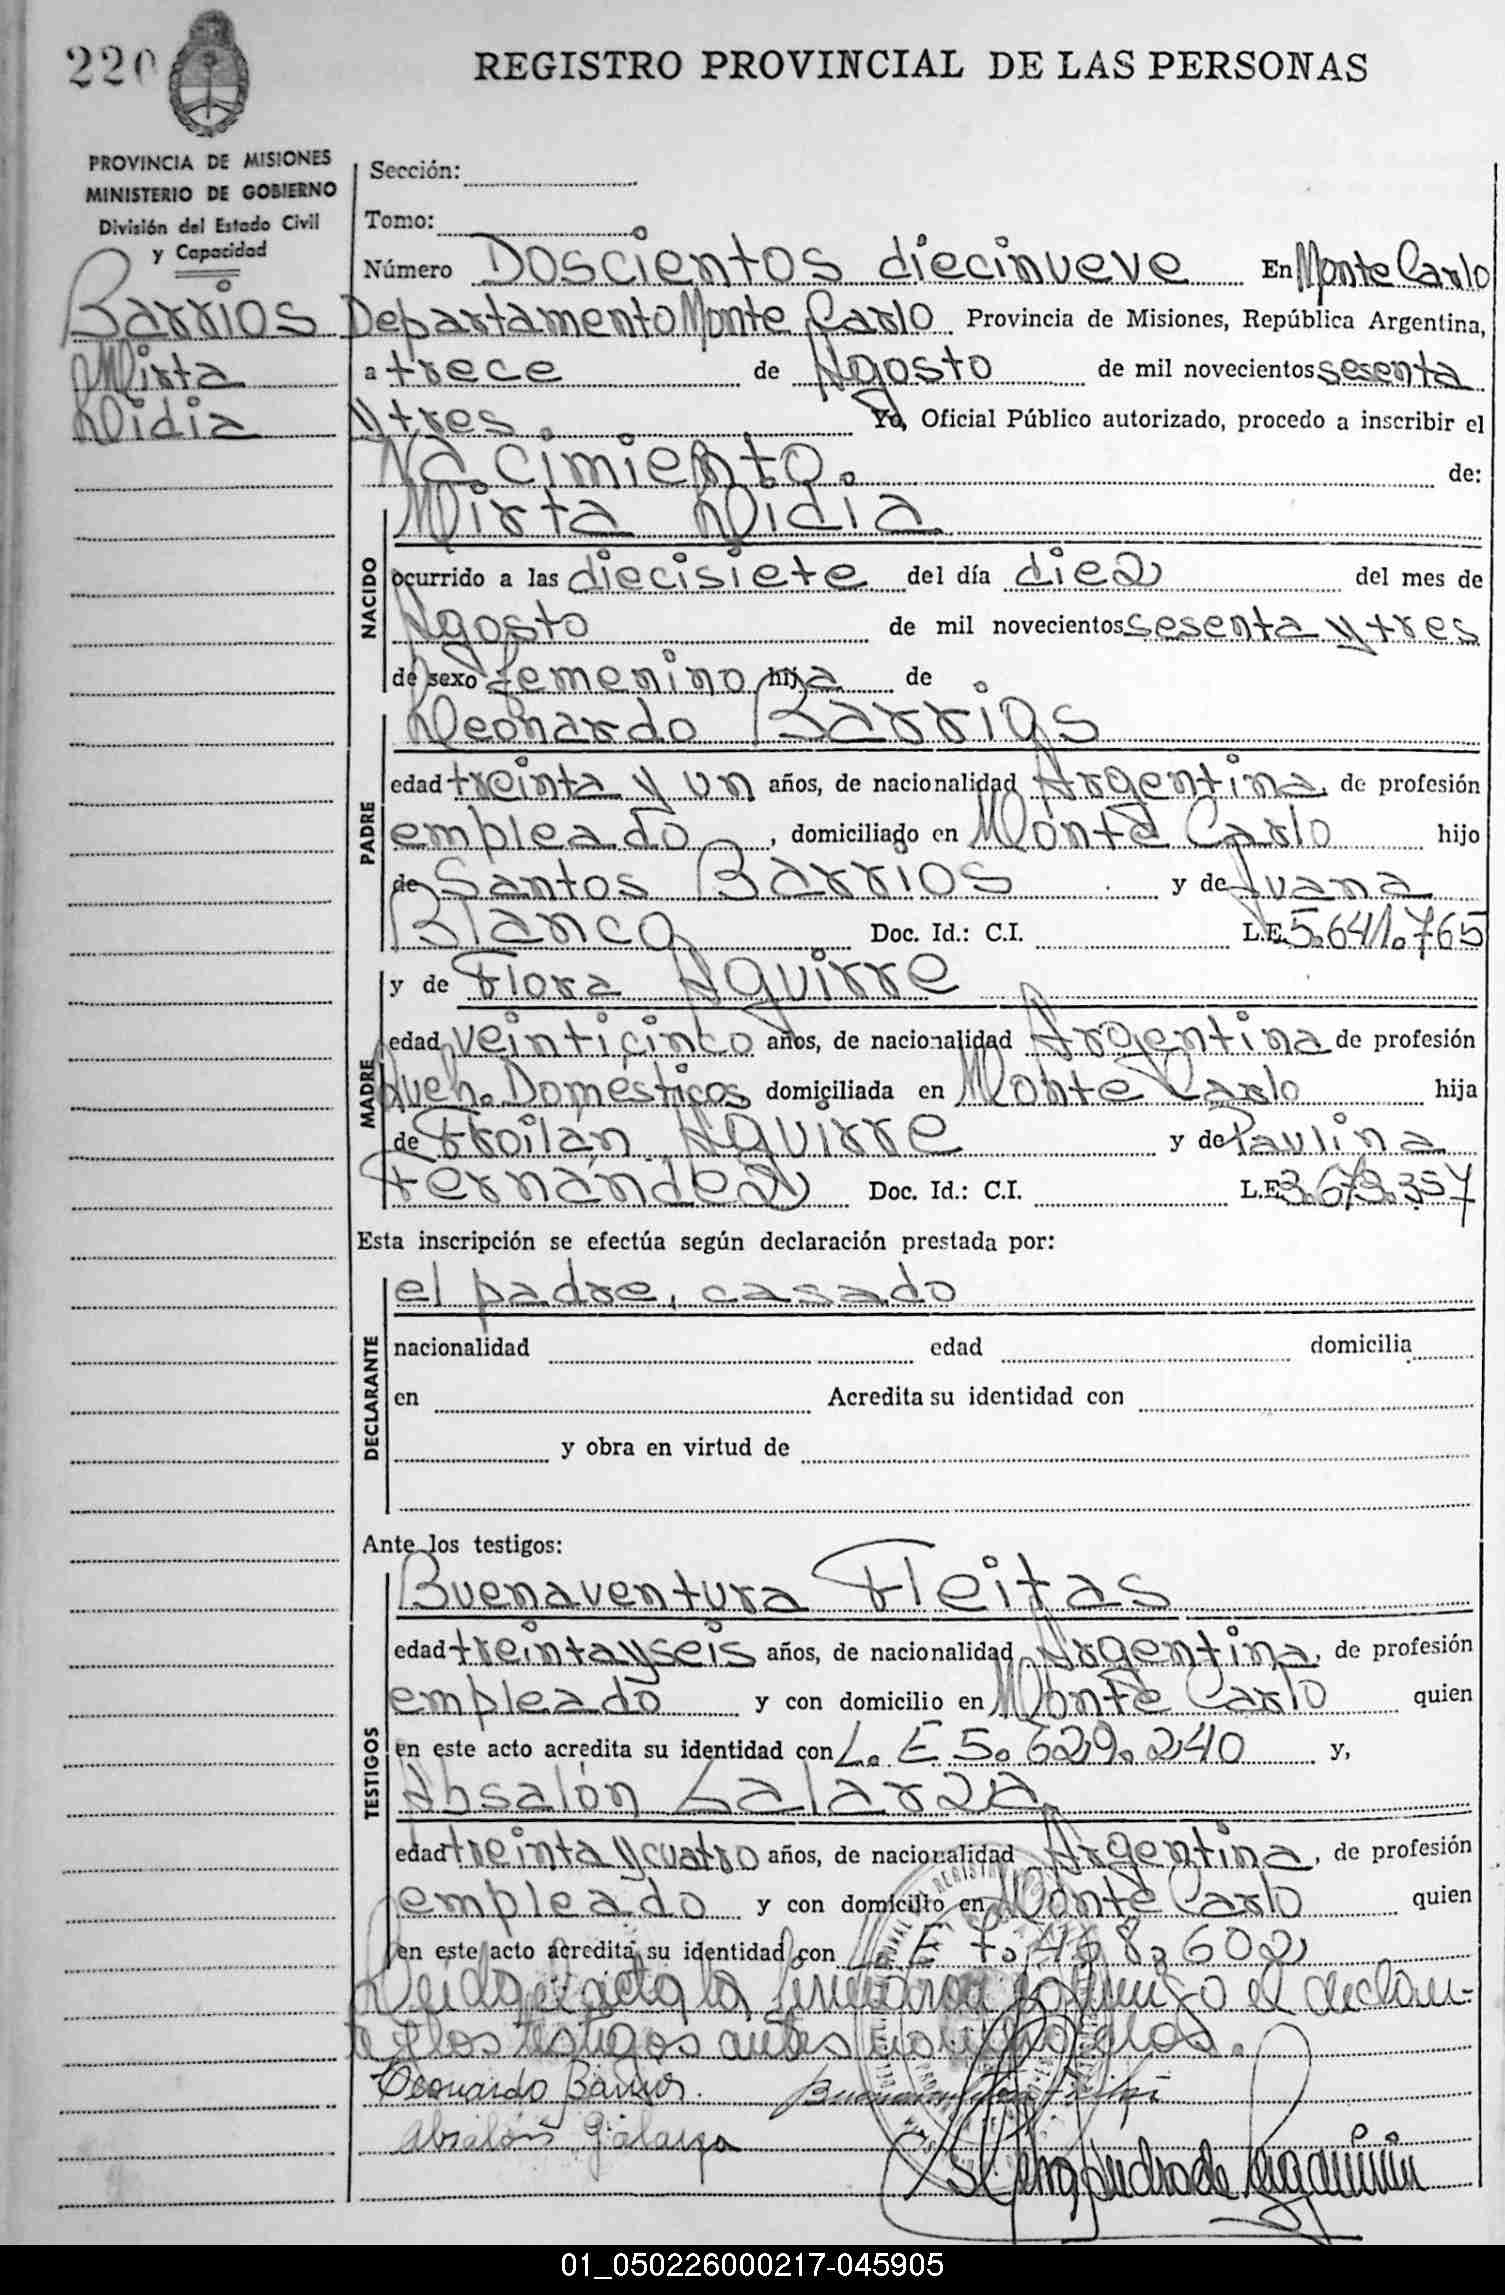 220
REGISTRO PROVINCIAL DE LAS PERSONAS
PROVINCIA DE MISIONES
MINISTERIO DE GOBIERNO
División del Estado Civil
y Capacidad
Barrios
Mirta
Lidia
Sección:
Tomo:
Número Doscientos diecinueve En Monte Carlo
Departamento Monte Carlo Provincia de Misiones, República Argentina,
a trece de Agosto de mil novecientos sesenta
y tres. Yo, Oficial Público autorizado, procedo a inscribir el
Nacimiento. de:
Mirta Lidia
NACIDO
ocurrido a las diecisiete del día diez del mes de
Agosto de mil novecientos sesenta y tres
de sexo femenino hija de
Leonardo Barrios
PADRE
edad treinta y un años, de nacionalidad Argentina, de profesión
empleado, domiciliado en Monte Carlo hijo
de Santos Barrios y de Juana
Blanco Doc. Id.: C.I. L.E. 5.641.765
MADRE
y de Flora Aguirre
edad veinticinco años, de nacionalidad Argentina de profesión
Queh. Domésticos domiciliada en Monte Carlo hija
de Froilán Aguirre y de Paulina
Fernández Doc. Id.: C.I. L.E. 3.673.357
Esta inscripción se efectúa según declaración prestada por:
el padre, casado
DECLARANTE
nacionalidad edad domicilia
en Acredita su identidad con
y obra en virtud de
Ante los testigos:
Buenaventura Fleitas
TESTIGOS
edad treinta y seis años, de nacionalidad Argentina, de profesión
empleado y con domicilio en Monte Carlo quien
en este acto acredita su identidad con L. E 5.629.240 y,
Absalón Galarza
edad treinta y cuatro años, de nacionalidad Argentina, de profesión
empleado y con domicilio en Monte Carlo quien
en este acto acredita su identidad con L. E 7.468.602
Leida el acta la firmaron conmigo el declaran-
te y los testigos antes nombrados.
Leonardo Barrios.
Absalón Galarza
01_050226000217-045905